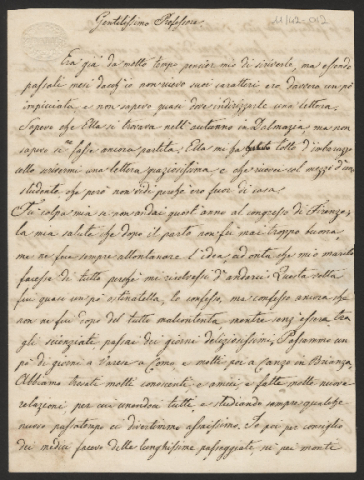 11/42-002
Gentilissimo Professore
Era già da molto tempo pensier mio di scriverle, ma essendo
passati mesi dacchè non rivedo suoi caratteri ero davvero un pò
impicciata e non sapevo quasi dove indirizzarle una lettera.
Sapevo che Ella si trovava nell'autunno in Dalmazia ma non
sapevo se ne fosse ancora partita. Ella mi ha tolto d'imbarazzo
allo scrivermi una lettera graziosissima e che ricevei col mezzo d'uno
studente che però non vidi perchè ero fuori di casa.
Fu colpa mia se non andai quest'anno al congresso di Firenze;
la mia salute che dopo il parto non fu mai troppo buona
me ne fece sempre allontanare l'idea ad onta che mio marito
facesse di tutto perchè mi risolvessi d'andarci. Questa volta
fui quasi un pò ostinatella, lo confesso, ma confesso ancora che
non ne fui dopo del tutto malcontenta, mentre senz'essere tra
gli scienziati passai dei giorni deliziosissimi. Passammo un
pò di giorni a Varese a Como e molti poi a Canzo in Brianza.
Abbiamo trovati molti conoscenti e amici e fatte molte nuove
relazioni per cui unendoci tutti e studiando sempre qualche
nuovo passatempo ci divertimmo assaissimo. Io poi per consiglio
dei medici facevo delle lunghissime passeggiate su pei monti